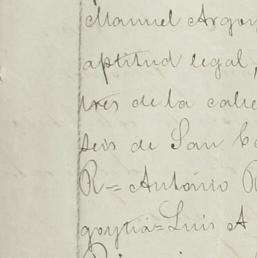 Manuel Argon
aptitud legal,
tres de la calle
seis de San Ca
R= Antonio R
goytia= Luis A